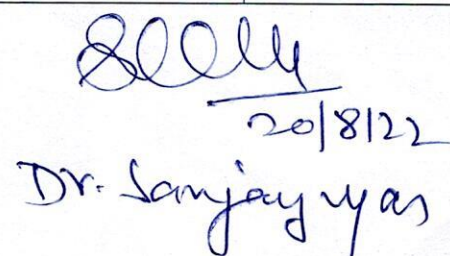 20/8/22
Dr. Sanjay Vyas